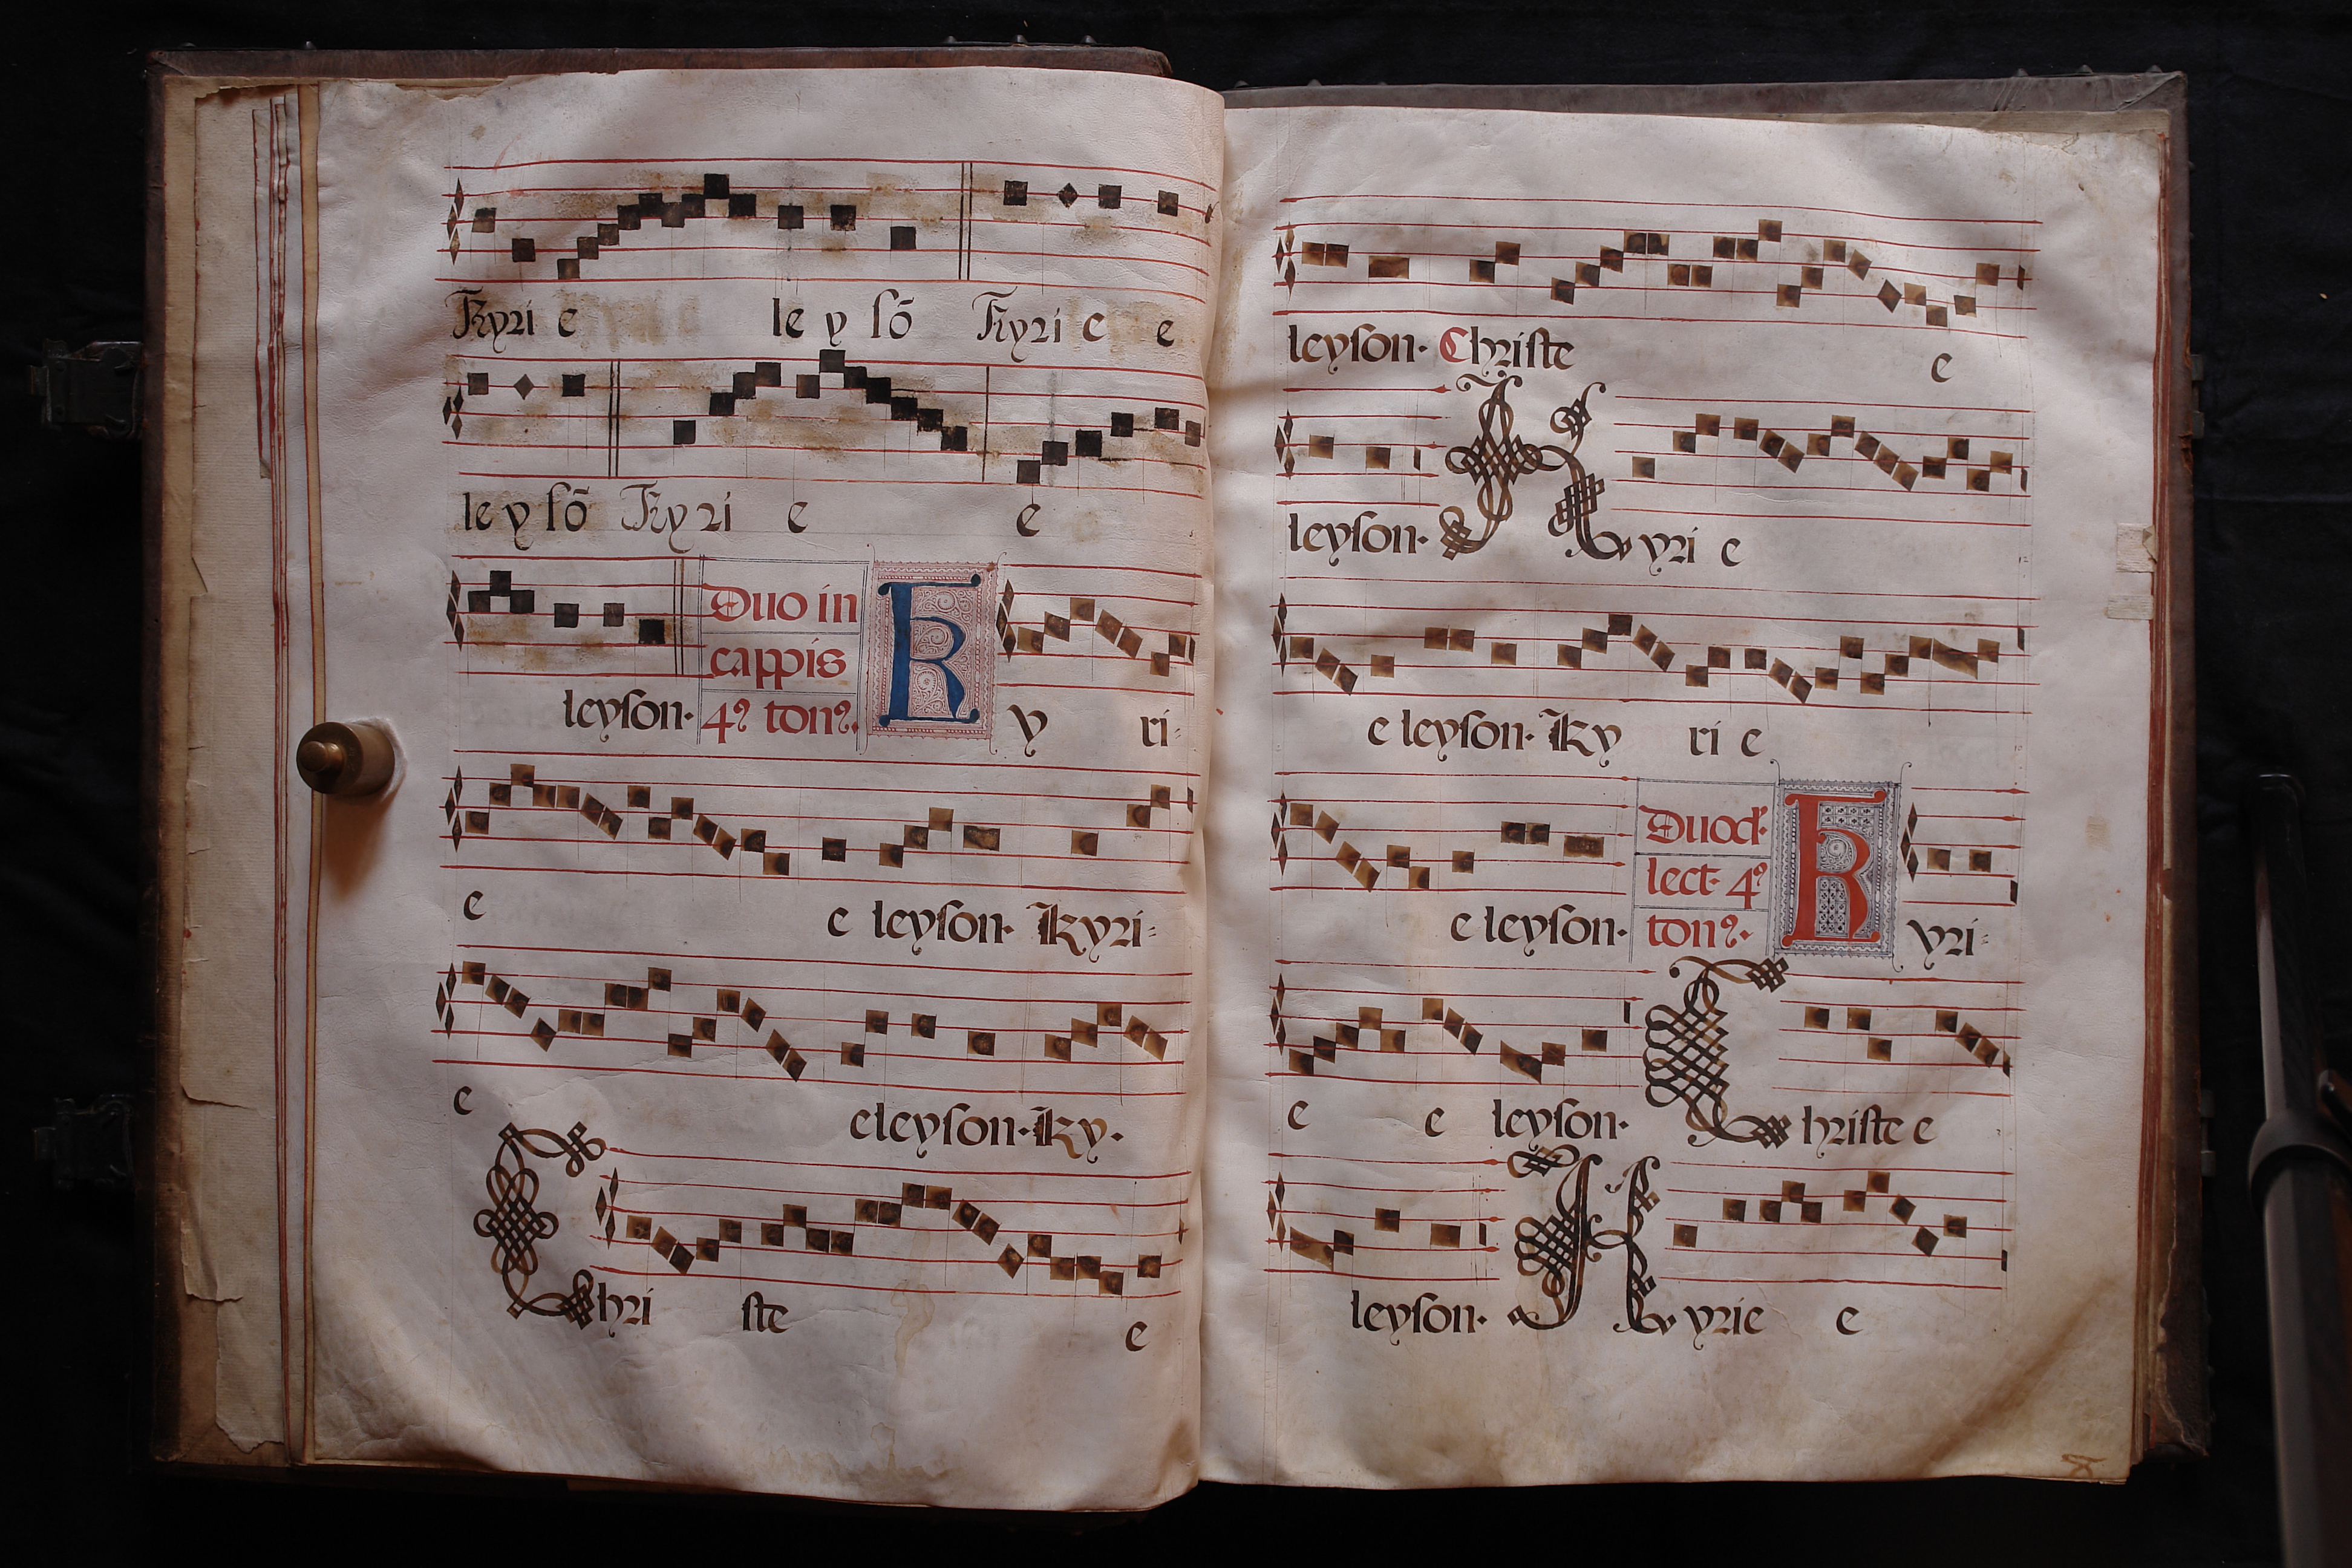 Kyri e le y sõ Kyri e e
le y sõ Kyri e e
leyson· Duo in cappis 4º tonº. K y ri-
e e leyson· Kyri-
e eleyson· Ky·
Chri ste e
leyson· Christe e
leyson· Kyri e
e leyson· Ky ri e
e leyson· Duod· lect· 4º tonº· K yri-
e e leyson· Christe e
leyson· Kyrie e
8